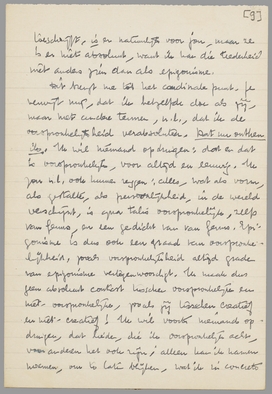 [9]
is er natuurlijk voor jou, maar ze
is er niet absoluut, want ik kan die
niet anders zien dan als epigonisme.
Dit brengt me tot het cardinale punt. Je
verwijt mij, dat ik hetzelfde doe als jij,
maar met andere termen, n.l., dat ik de
oorspronkelijkheid verabsoluteer. Dat nu ontken
ik. Ik wil niemand opdringen: dat en dat
is oorspronkelijk, voor altijd en eeuwig. Ik
zou n.l. ook kunnen zeggen: alles, wat als vorm,
als gestalte, als persoonlijkheid, in de wereld
verschijnt, is qua talis oorspronkelijk, zelfs
van Genus, en een gedicht van van Genus. Epi-
gonisme is dus ook een graad van oorspronke-
lijkheid, zooals oorspronkelijkheid altijd graden
van epigonisme vertegenwoordigt. Ik maak dus
geen absoluut contrast tusschen oorspronkelijk en
niet-oorspronkelijk, zooals jij tusschen creatief
en niet-creatief! Ik wil voorts niemand op-
dringen, dat hetgeen, die ik oorspronkelijk acht,
voor anderen het ook zijn; alleen kan ik namen
noemen, om te laten blijken, wat ik in concreto